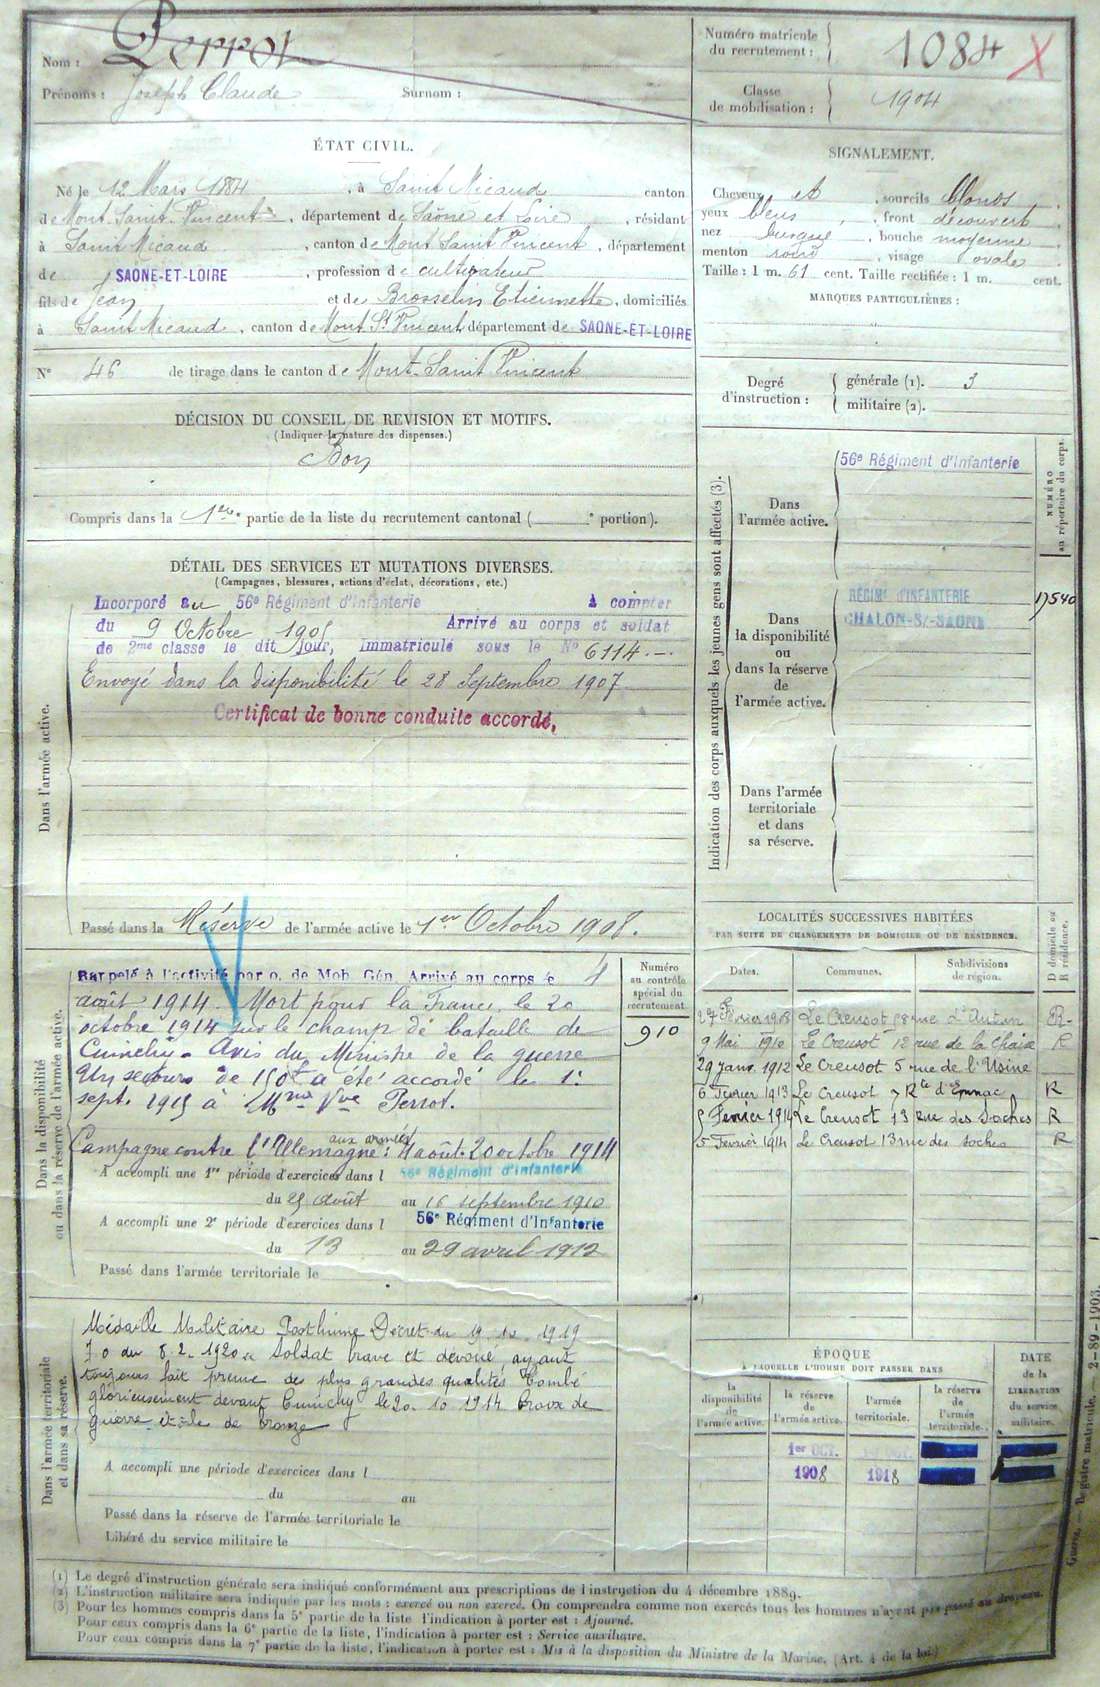 Nom : Perrot
Prénoms : Joseph Claude Surnom :
Numéro matricule du recrutement : 1084 X
Classe de mobilisation : 1904
ÉTAT CIVIL.
Né le 12 Mars 1884, à Saint Micaud canton
de Mont-Saint-Vincent, département de Saône et Loire, résidant
à Saint Micaud, canton de Mont Saint Vincent, département
de SAONE-ET-LOIRE, profession de cultivateur
fils de Jean et de Brosselin Etiennette, domiciliés
à Saint Micaud, canton de Mont St Vincent département de SAONE-ET-LOIRE
N° 46 de tirage dans le canton de Mont-Saint Vincent
SIGNALEMENT.
Cheveux et, sourcils blonds,
yeux bleus, front découvert,
nez busqué, bouche moyenne,
menton rond, visage ovale.
Taille : 1 m. 61 cent. Taille rectifiée : 1 m. cent.
MARQUES PARTICULIÈRES :
Degré d'instruction : générale (1). 3
militaire (2).
DÉCISION DU CONSEIL DE REVISION ET MOTIFS.
(Indiquer la nature des dispenses.)
Bon
Compris dans la 1re partie de la liste du recrutement cantonal ( e portion).
DÉTAIL DES SERVICES ET MUTATIONS DIVERSES.
(Campagnes, blessures, actions d'éclat, décorations, etc.)
Dans l'armée active.
Incorporé au 56e Régiment d'Infanterie à compter
du 9 Octobre 1905 Arrivé au corps et soldat
de 2me classe le dit jour, immatriculé sous le No 6114.-.
Envoyé dans la disponibilité le 28 Septembre 1907
Certificat de bonne conduite accordé.
Passé dans la Réserve de l'armée active le 1er Octobre 1908.
Indication des corps auxquels les jeunes gens sont affectés (3).
NUMÉRO au répertoire du corps.
Dans l'armée active.
56e Régiment d'Infanterie
Dans la disponibilité ou dans la réserve de l'armée active.
RÉGIMt D'INFANTERIE
CHALON-S/-SAONE
17540
Dans l'armée territoriale et dans sa réserve.
Dans la disponibilité ou dans la réserve de l'armée active.
Rappelé à l'activité par o. de Mob. Gén. Arrivé au corps le 4
août 1914. Mort pour la France le 20
octobre 1914 sur le champ de bataille de
Cuinchy. Avis du Ministre de la guerre
Un secours de 150f a été accordé le 1r
sept. 1915 à Mme Vve Perrot.
Campagne contre l'Allemagne : aux armées 4 août-20 octobre 1914
A accompli une 1re période d'exercices dans l 56e Régiment d'Infanterie
du 25 août au 16 septembre 1910
A accompli une 2e période d'exercices dans l 56e Régiment d'Infanterie
du 13 au 29 avril 1912
Passé dans l'armée territoriale le
Numéro au contrôle spécial du recrutement
910
LOCALITÉS SUCCESSIVES HABITÉES
PAR SUITE DE CHANGEMENTS DE DOMICILE OU DE RÉSIDENCE.
Dates. Communes. Subdivisions de région. D domicile ou R résidence.
27 Février 1908 Le Creusot 58 rue d'Autun R.
9 Mai 1910 Le Creusot 12 rue de la Chaise R
29 janv. 1912 Le Creusot 5 rue de l'Usine
6 Février 1913 Le Creusot 7 Rte d'Epinac R
5 Février 1914 Le Creusot 13 Rue des Soches R
5 Février 1914 Le Creusot 13 rue des Soches R
Dans l'armée territoriale et dans sa réserve.
Médaille Militaire Posthume Décret du 19.12.1919
J o du 8.2.1920 Soldat brave et dévoué, ayant
toujours fait preuve des plus grandes qualités Tombé
glorieusement devant Cuinchy le 20.10.1914 Croix de
guerre Etoile de bronze
A accompli une période d'exercices dans l
du au
Passé dans la réserve de l'armée territoriale le
Libéré du service militaire le
ÉPOQUE
À LAQUELLE L'HOMME DOIT PASSER DANS
DATE de la LIBÉRATION du service militaire.
la disponibilité de l'armée active. la réserve de l'armée active. l'armée territoriale. la réserve de l'armée territoriale.
1er OCT. 1er OCT.
1908 1918
(1) Le degré d'instruction générale sera indiqué conformément aux prescriptions de l'instruction du 4 décembre 1889.
(2) L'instruction militaire sera indiquée par les mots : exercé ou non exercé. On comprendra comme non exercés tous les hommes n'ayant pas passé au drapeau.
(3) Pour les hommes compris dans la 5e partie de la liste l'indication à porter est : Ajourné.
Pour ceux compris dans la 6e partie de la liste, l'indication à porter est : Service auxiliaire.
Pour ceux compris dans la 7e partie de la liste, l'indication à porter est : Mis à la disposition du Ministre de la Marine. (Art. 4 de la loi.)
Guerre. — Registre matricule. — 2-89-1903.